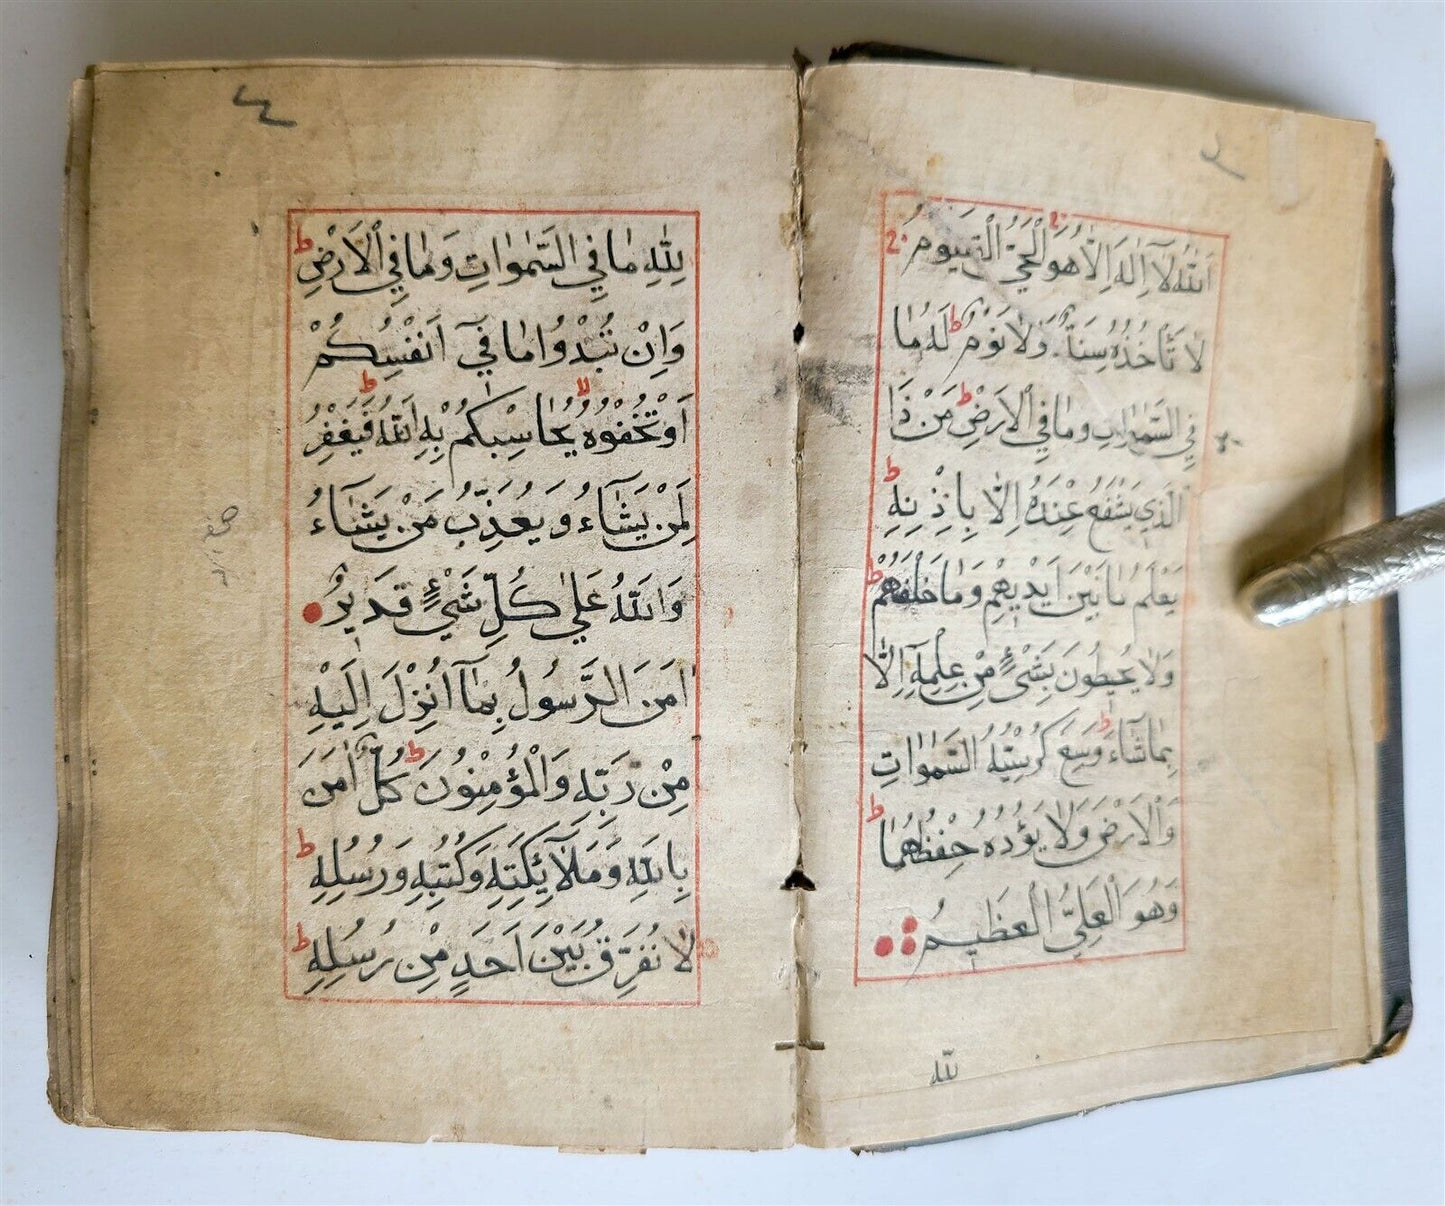 ٣
اَللّٰهُ لَآ اِلٰهَ اِلَّا هُوَ الْحَيُّ الْقَيُّومُ
لَا تَأْخُذُهُ سِنَةٌ وَلَا نَوْمٌ ط لَهُ مَا
فِي السَّمٰوَاتِ وَمَا فِي الْاَرْضِ ط مَنْ ذَا
الَّذِي يَشْفَعُ عِنْدَهُ اِلَّا بِاِذْنِهِ ط
يَعْلَمُ مَا بَيْنَ اَيْدِيهِمْ وَمَا خَلْفَهُمْ ط
وَلَا يُحِيطُونَ بِشَيْءٍ مِنْ عِلْمِهِ اِلَّا
بِمَا شَآءَ ط وَسِعَ كُرْسِيُّهُ السَّمٰوَاتِ
وَالْاَرْضَ وَلَا يَؤُدُهُ حِفْظُهُمَا ط
وَهُوَ الْعَلِيُّ الْعَظِيمُ
لله
٤
لِلّٰهِ مَا فِي السَّمٰوَاتِ وَمَا فِي الْاَرْضِ ط
وَاِنْ تُبْدُوا مَا فِيٓ اَنْفُسِكُمْ
اَوْ تُخْفُوهُ يُحَاسِبْكُمْ بِهِ اللّٰهُ ط فَيَغْفِرُ
لِمَنْ يَشَآءُ وَيُعَذِّبُ مَنْ يَشَآءُ
وَاللّٰهُ عَلٰي كُلِّ شَيْءٍ قَدِيرٌ
اٰمَنَ الرَّسُولُ بِمَآ اُنْزِلَ اِلَيْهِ
مِنْ رَبِّهِ وَالْمُؤْمِنُونَ ط كُلٌّ اٰمَنَ
بِاللّٰهِ وَمَلَآئِكَتِهِ وَكُتُبِهِ وَرُسُلِهِ ط
لَا نُفَرِّقُ بَيْنَ اَحَدٍ مِنْ رُسُلِهِ ط